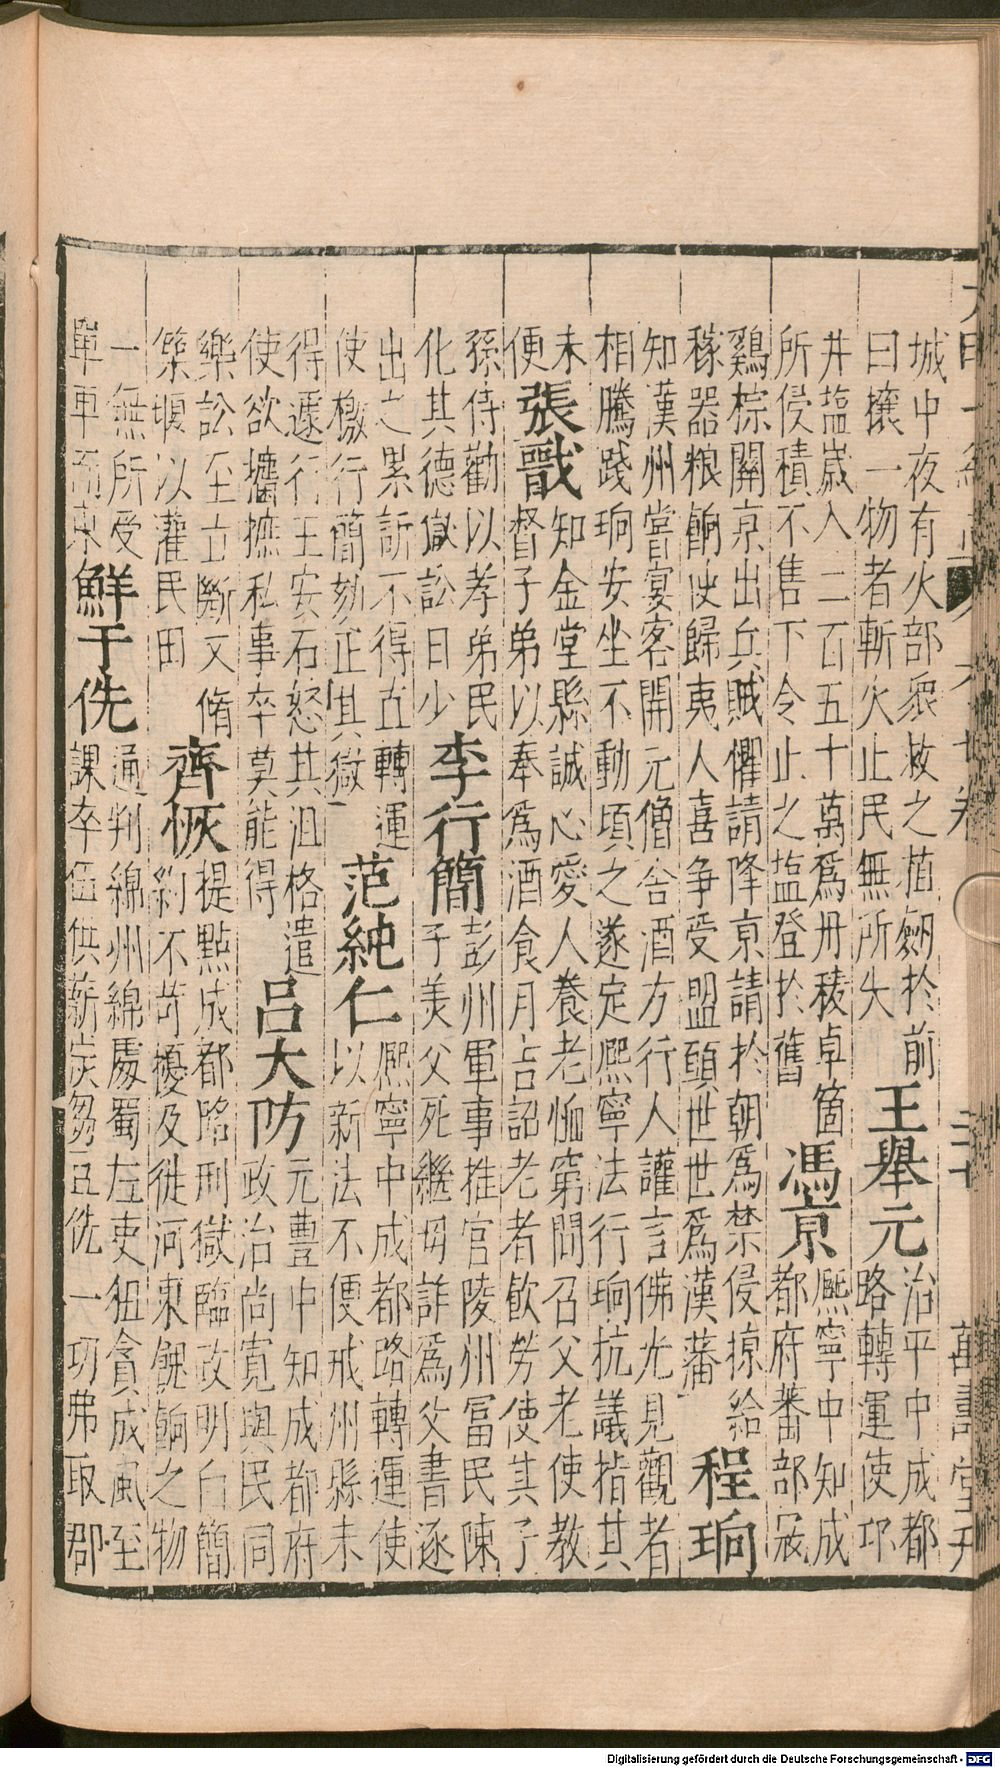 城中夜有火部眾救之植劒於前
曰攘一物者斬火止民無所失
王舉元
治平中成都
路轉運使邛
井塩歲入二百五十萬爲丹稜卓箇
所侵積不售下令止之塩登於舊
馮京
熙寧中知成
都府蕃部寇
鷄棕關京出兵賊懼請降京請於朝爲禁侵掠給
稼器粮餉使歸夷人喜争受盟願世世爲漢藩
程珦
知漢州嘗宴客開元僧舍酒方行人讙言佛光見觀者
相騰踐珦安坐不動頃之遂定熙寧法行珦抗議指其
未
便
張戩
知金堂縣誠心愛人養老恤窮間召父老使教
督子弟以奉爲酒食月吉詔老者飲勞使其子
孫侍勸以孝弟民
化其德獄訟日少
李行簡
彭州軍事推官陵州富民陳
子美父死繼母詐爲父書逐
出之累訴不得直轉運
使檄行簡劾正其獄
范純仁
熙寧中成都路轉運使
以新法不便戒州縣未
得遽行王安石怒其沮格遣
使欲攟摭私事卒莫能得
呂大防
元豊中知成都府
政治尚寛與民同
樂訟至立斷又脩
築堰以灌民田
齊恢
提點成都路刑獄臨政明白簡
約不苛擾及徙河東餽餉之物
一無所受
單車而東
鮮于侁
通判綿州綿處蜀左吏狃貪成風至
課卒伍供薪炭芻豆侁一切弗取郡
Digitalisierung gefördert durch die Deutsche Forschungsgemeinschaft - DFG